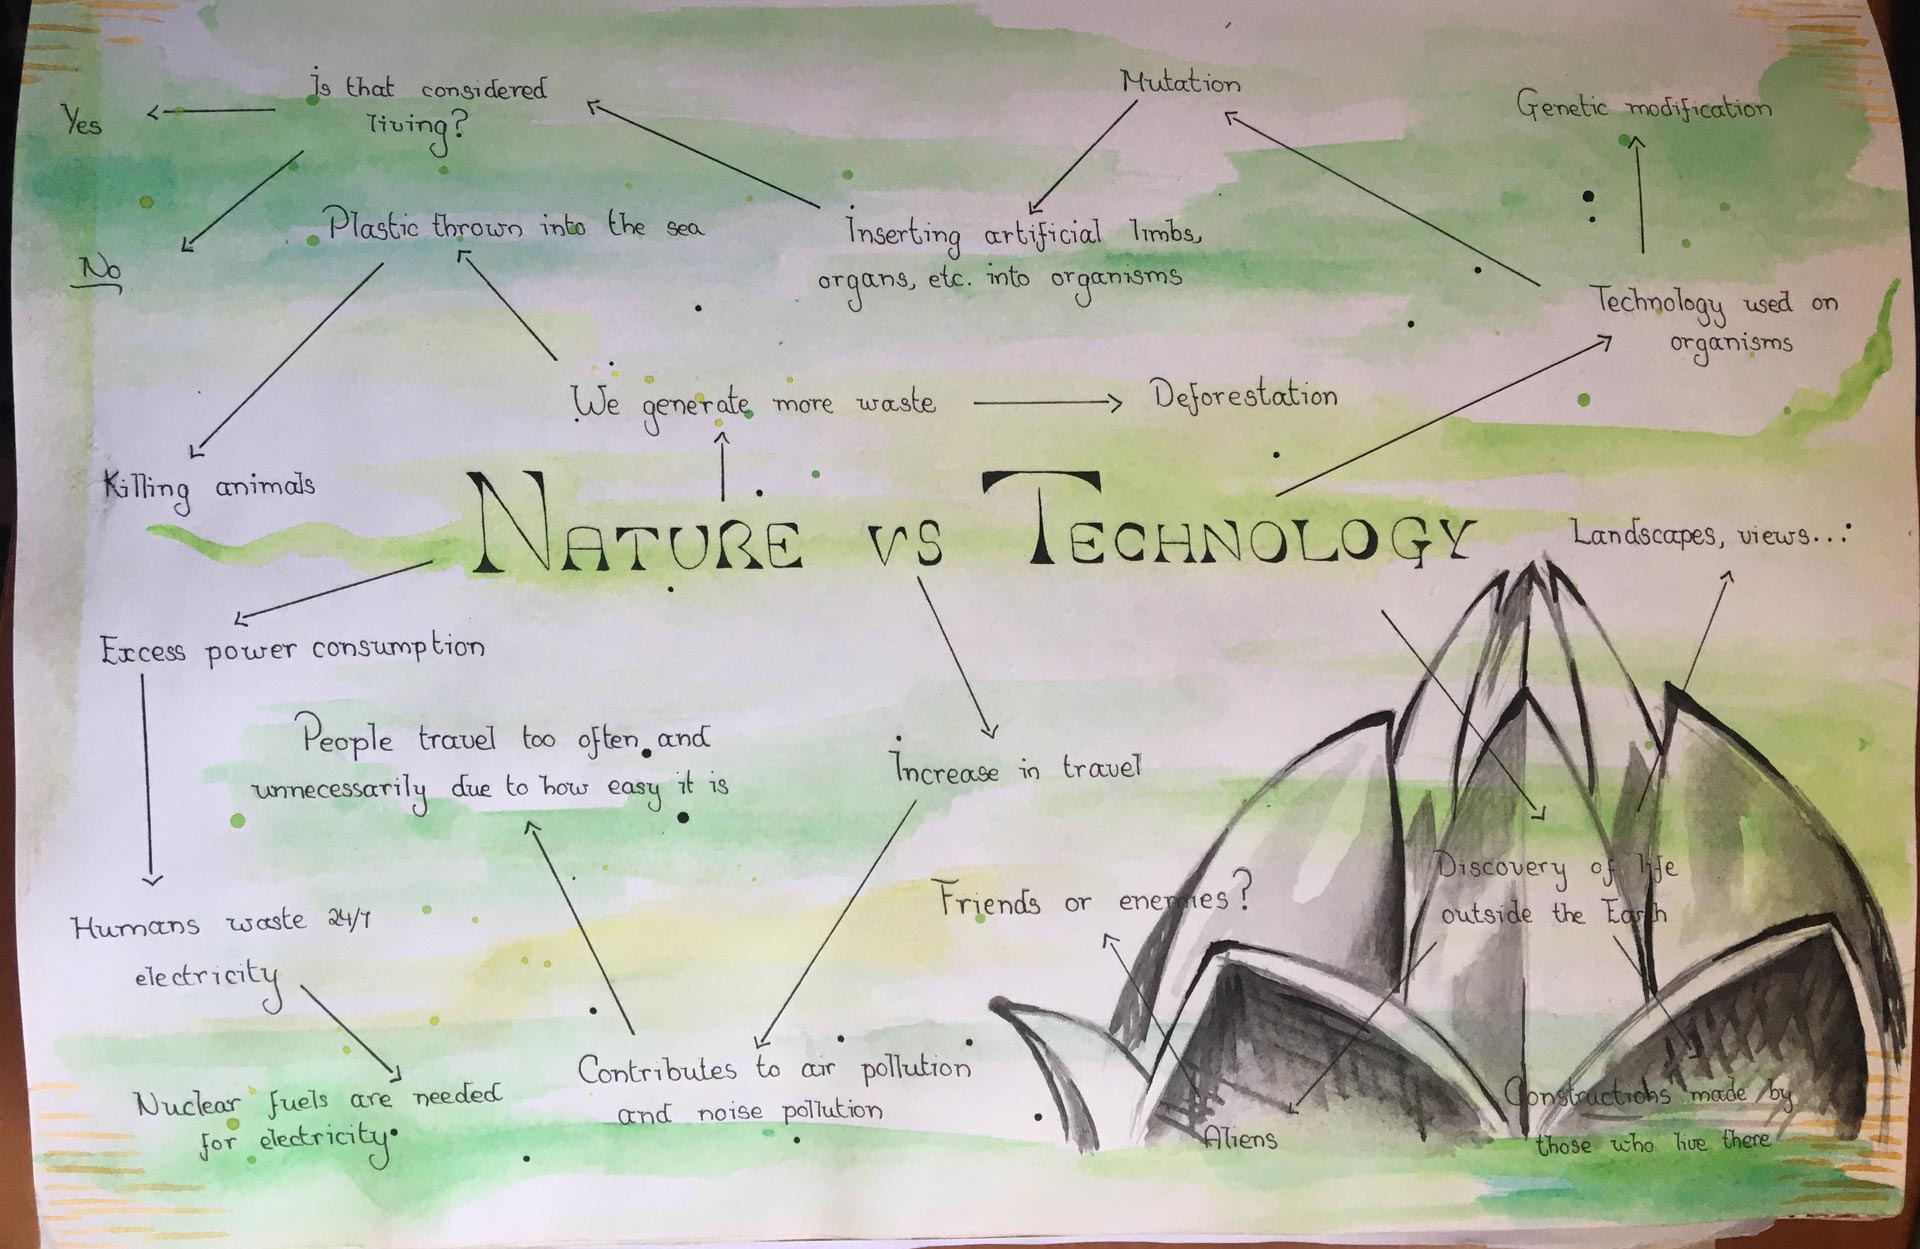 Is that considered
living?
Yes
No
Mutation
Genetic modification
Plastic thrown into the sea
Inserting artificial limbs,
organs, etc. into organisms
Technology used on
organisms
We generate more waste
Deforestation
Killing animals
NATURE VS TECHNOLOGY
Landscapes, views...
Excess power consumption
People travel too often and
unnecessarily due to how easy it is
Increase in travel
Discovery of life
outside the Earth
Friends or enemies?
Humans waste 24/7
electricity
Contributes to air pollution
and noise pollution
Nuclear fuels are needed
for electricity
Aliens
Constructions made by
those who live there